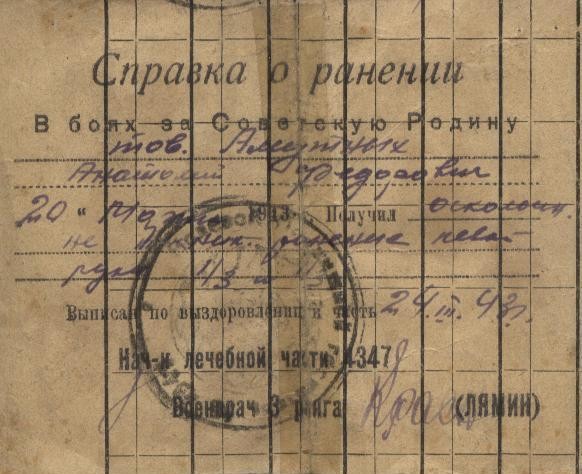 Справка о ранении
В боях за Советскую Родину
тов. Амутных
Анатолий Федорович
20 " Марта 1943 г. Получил осколочн.
не ранение левой
руки
Выписан по выздоровлении в часть 24.III.43 г.
Нач-к лечебной части 4347
Военврач 3 ранга (ЛЯМИН)